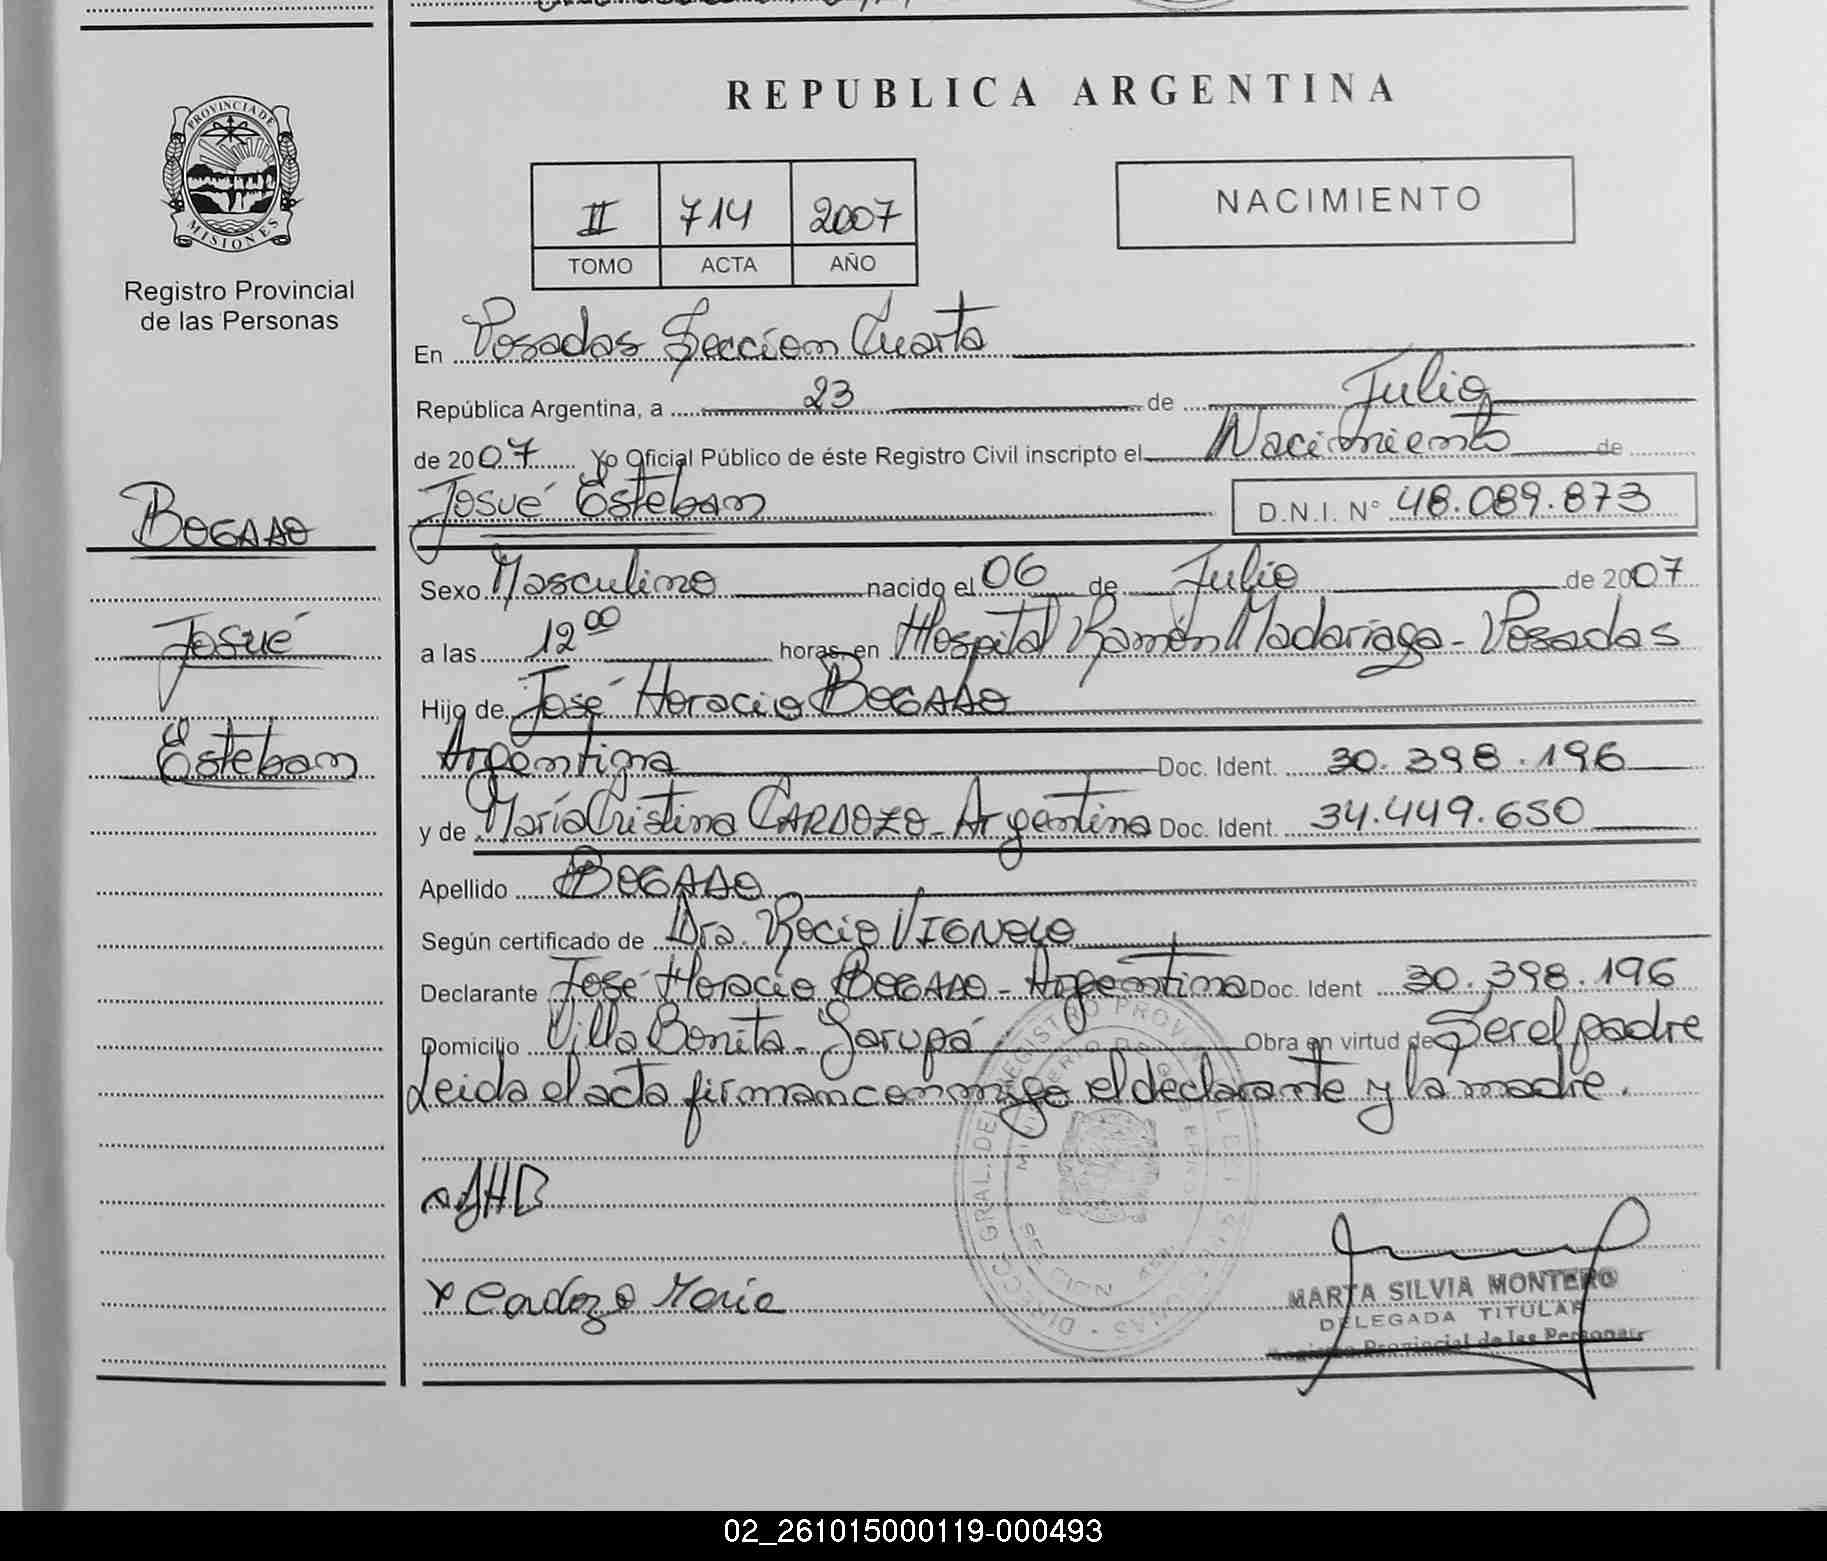 REPUBLICA ARGENTINA
PROVINCIA DE
MISIONES
Registro Provincial
de las Personas
II 714 2007
TOMO ACTA AÑO
NACIMIENTO
En Posadas Sección Cuarta
República Argentina, a 23 de Julio
de 2007 Yo Oficial Público de éste Registro Civil inscripto el Nacimiento de
BOGADO
Josué Esteban D.N.I. Nº 48.089.873
Sexo Masculino nacido el 06 de Julio de 2007
Josué
a las 12 00 horas, en Hospital Ramón Madariaga - Posadas
Hijo de José Horacio BOGADO
Esteban
Argentina Doc. Ident. 30.398.196
y de María Cristina CARDOZO - Argentina Doc. Ident. 34.449.650
Apellido BOGADO
Según certificado de Dra. Rocio VIGNOLO
Declarante José Horacio BOGADO - Argentina Doc. Ident 30.398.196
Domicilio Villa Bonita - Garupá Obra en virtud de Ser el padre
Leida el acta firman conmigo el declarante y la madre.
JHB
x Cardozo Maria
MARTA SILVIA MONTERO
DELEGADA TITULAR
Registro Provincial de las Personas
02_261015000119-000493